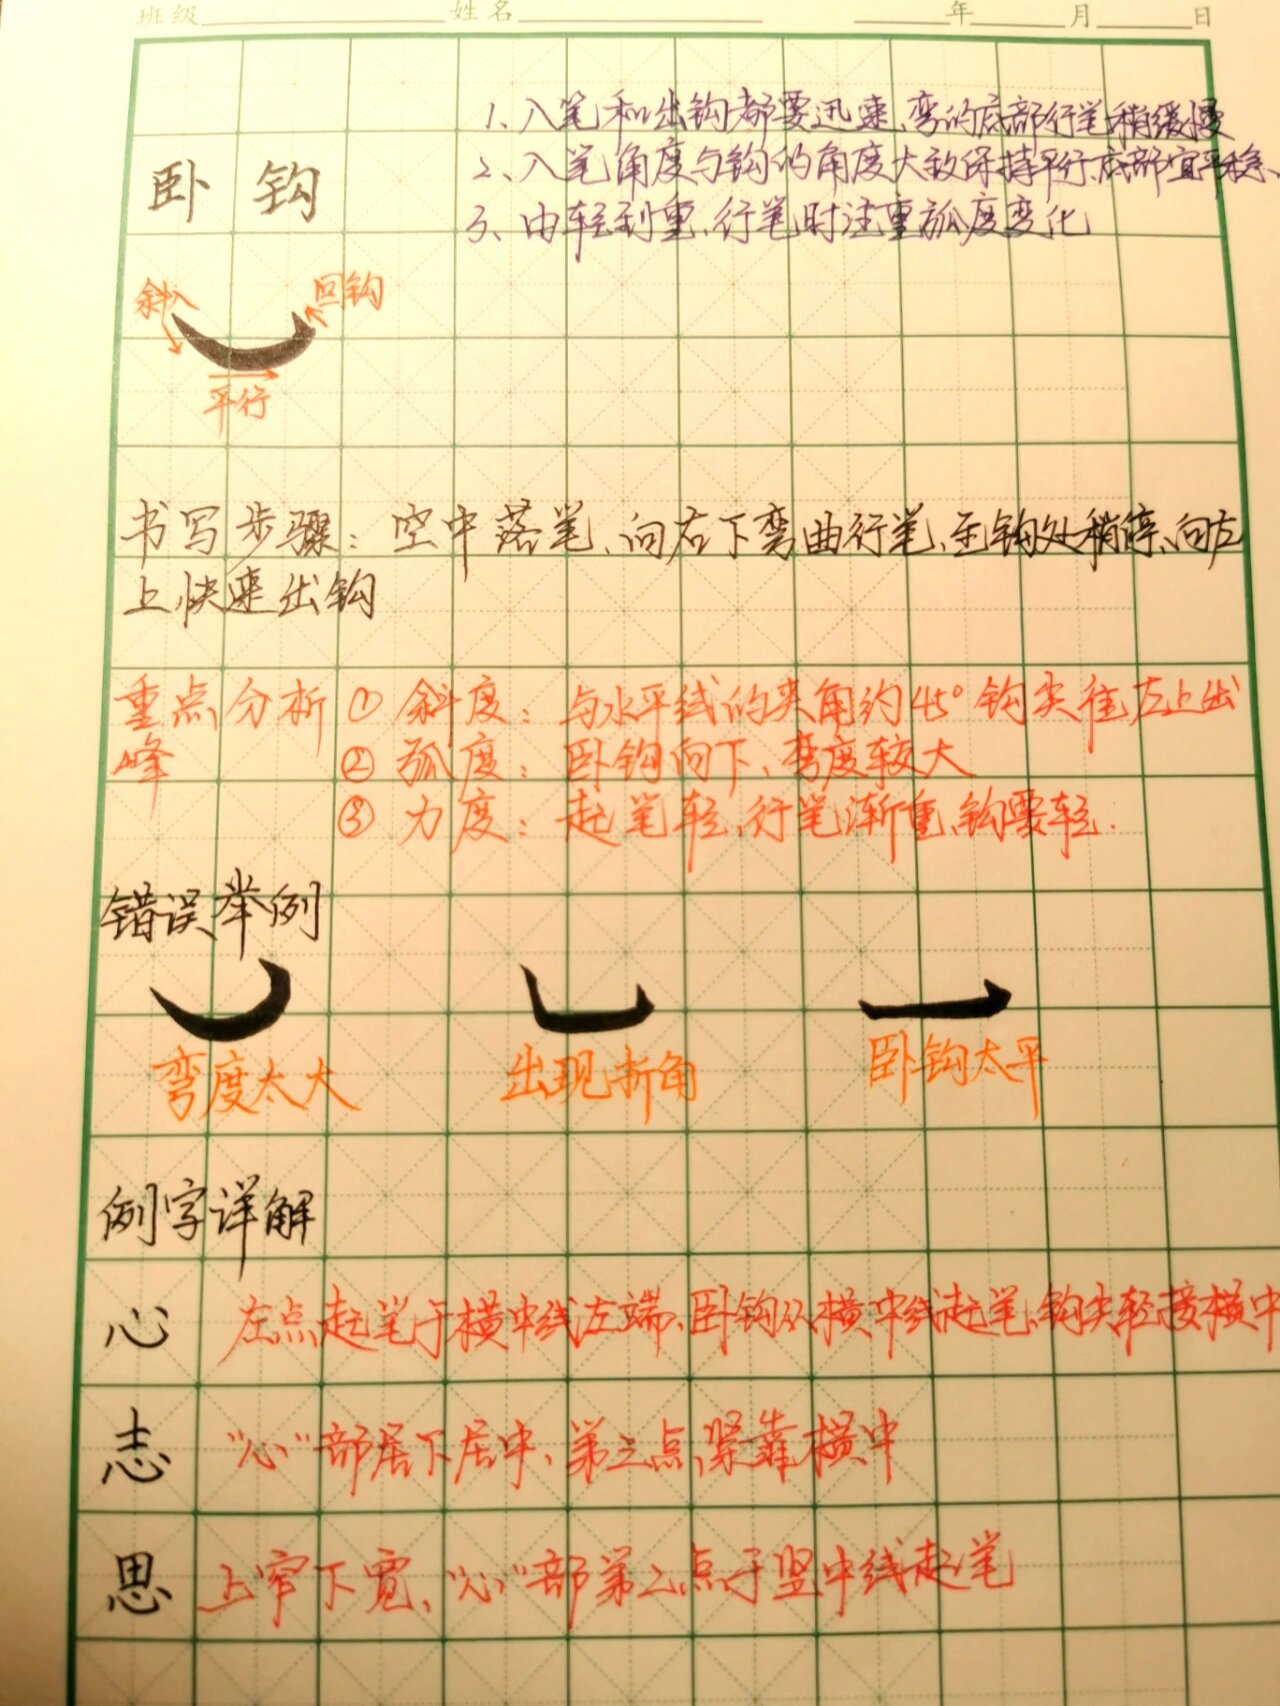 班级 姓名 年 月 日
1、入笔和出钩都要迅速、弯的底部行笔稍缓慢
卧钩
2、入笔角度与钩的角度大致保持平行、底部宜平稳、
3、由轻到重、行笔时注重弧度变化
斜入 回钩
平行
书写步骤：空中落笔、向右下弯曲行笔、至钩处稍停、向左
上快速出钩
重点分析 ① 斜度：与水平线的夹角约45° 钩尖往左上出
峰 ② 弧度：卧钩向下、弯度较大
③ 力度：起笔轻、行笔渐重、钩要轻.
错误举例
弯度太大 出现折角 卧钩太平
例字详解
心 左点起笔于横中线左端、卧钩从横中线起笔、钩尖轻接横中
志 “心”部居下居中、第三点紧靠横中
思 上窄下宽、“心”部第二点于竖中线起笔